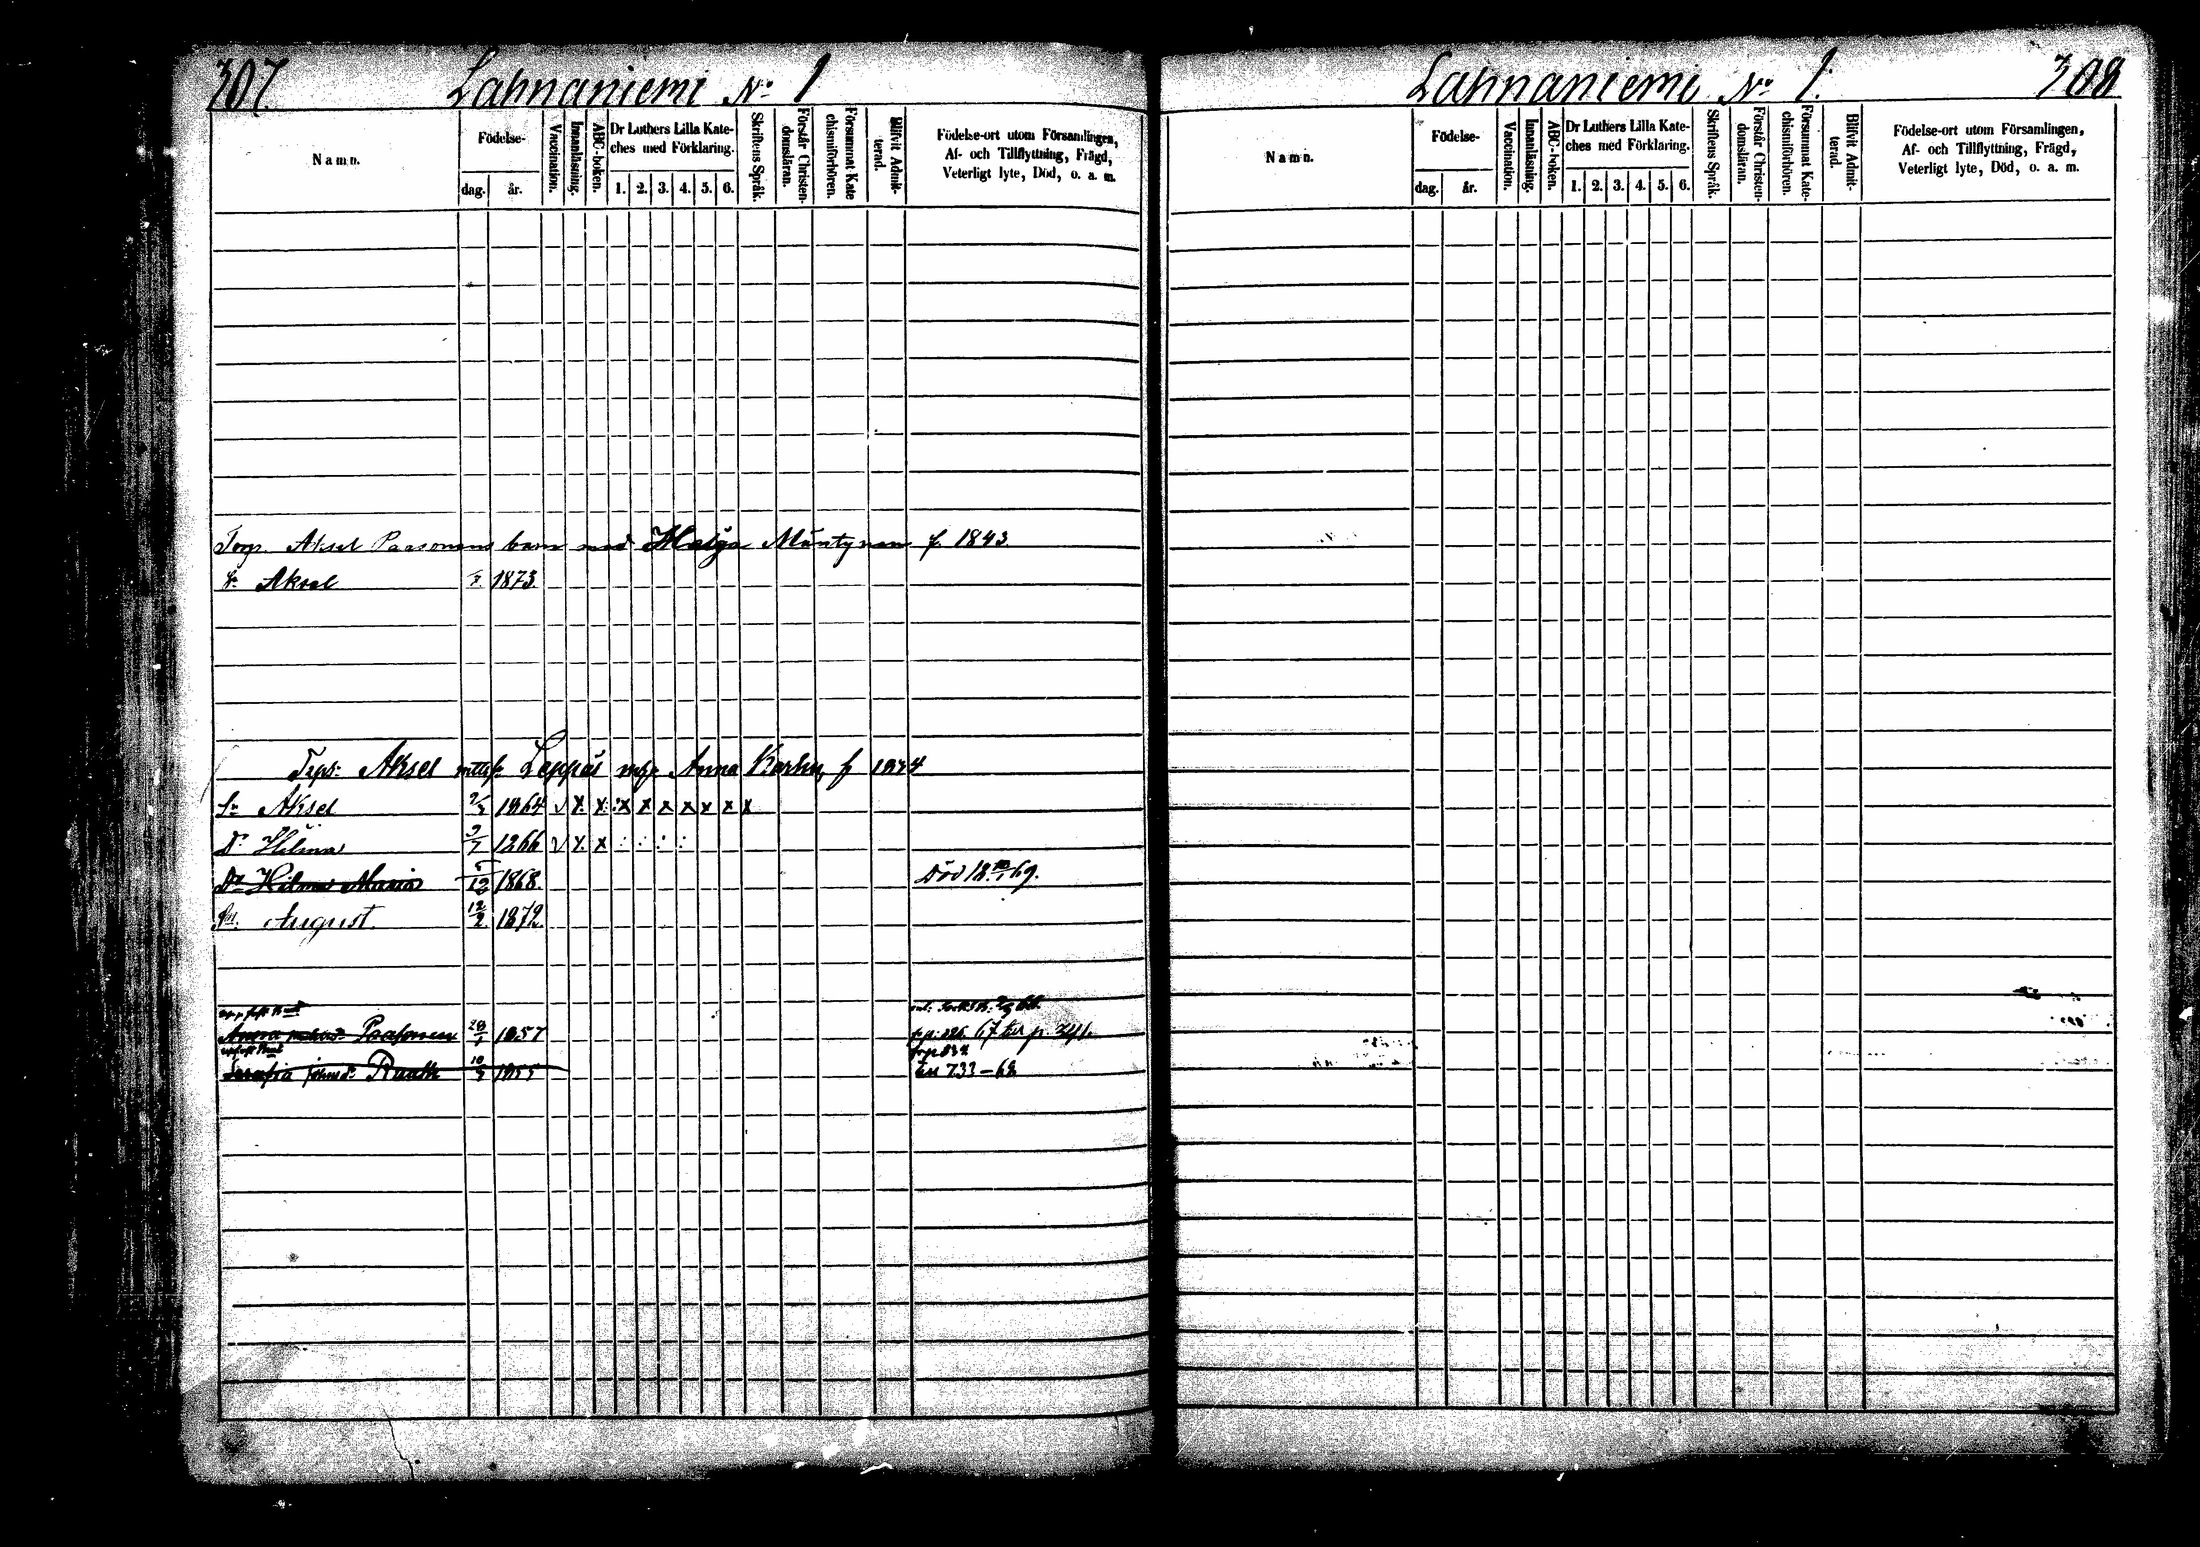 307.
Lahnaniemi No 1
Namn.
Födelse-
dag.
år.
Vaccination.
Innanläsning.
ABC-boken.
Dr Luthers Lilla Kate-
ches med Förklaring.
1. 2. 3. 4. 5. 6.
Skriftens Språk.
Förstår Christen-
domsläran.
Försummat Kate
chismiförhören.
Blifvit Admit-
terad.
Födelse-ort utom Församlingen,
Af- och Tillflyttning, Frägd,
Veterligt lyte, Död, o. a. m.
Torp. Aksel Paasonens barn med Maija Mäntynen f. 1843.
Aksel 1873.
Aksel Leppäs Anna f 1834
Sn Aksel 1864 v x x x x x x x x x
Dr Hilma 9/7 1866 v x x
Dr Hilma Maria 1868. Död 18 69.
Sn. August. 12/2. 1872.
Anna Paasonen 1857 67 p. 241.
Serafia Raath 10/3 1855 733-68
Lahnaniemi No 1.
308
Namn.
Födelse-
dag.
år.
Vaccination.
Innanläsning.
ABC-boken.
Dr Luthers Lilla Kate-
ches med Förklaring.
1. 2. 3. 4. 5. 6.
Skriftens Språk.
Förstår Christen-
domsläran.
Försummat Kate-
chismiförhören.
Blifvit Admit-
terad.
Födelse-ort utom Församlingen,
Af- och Tillflyttning, Frägd,
Veterligt lyte, Död, o. a. m.